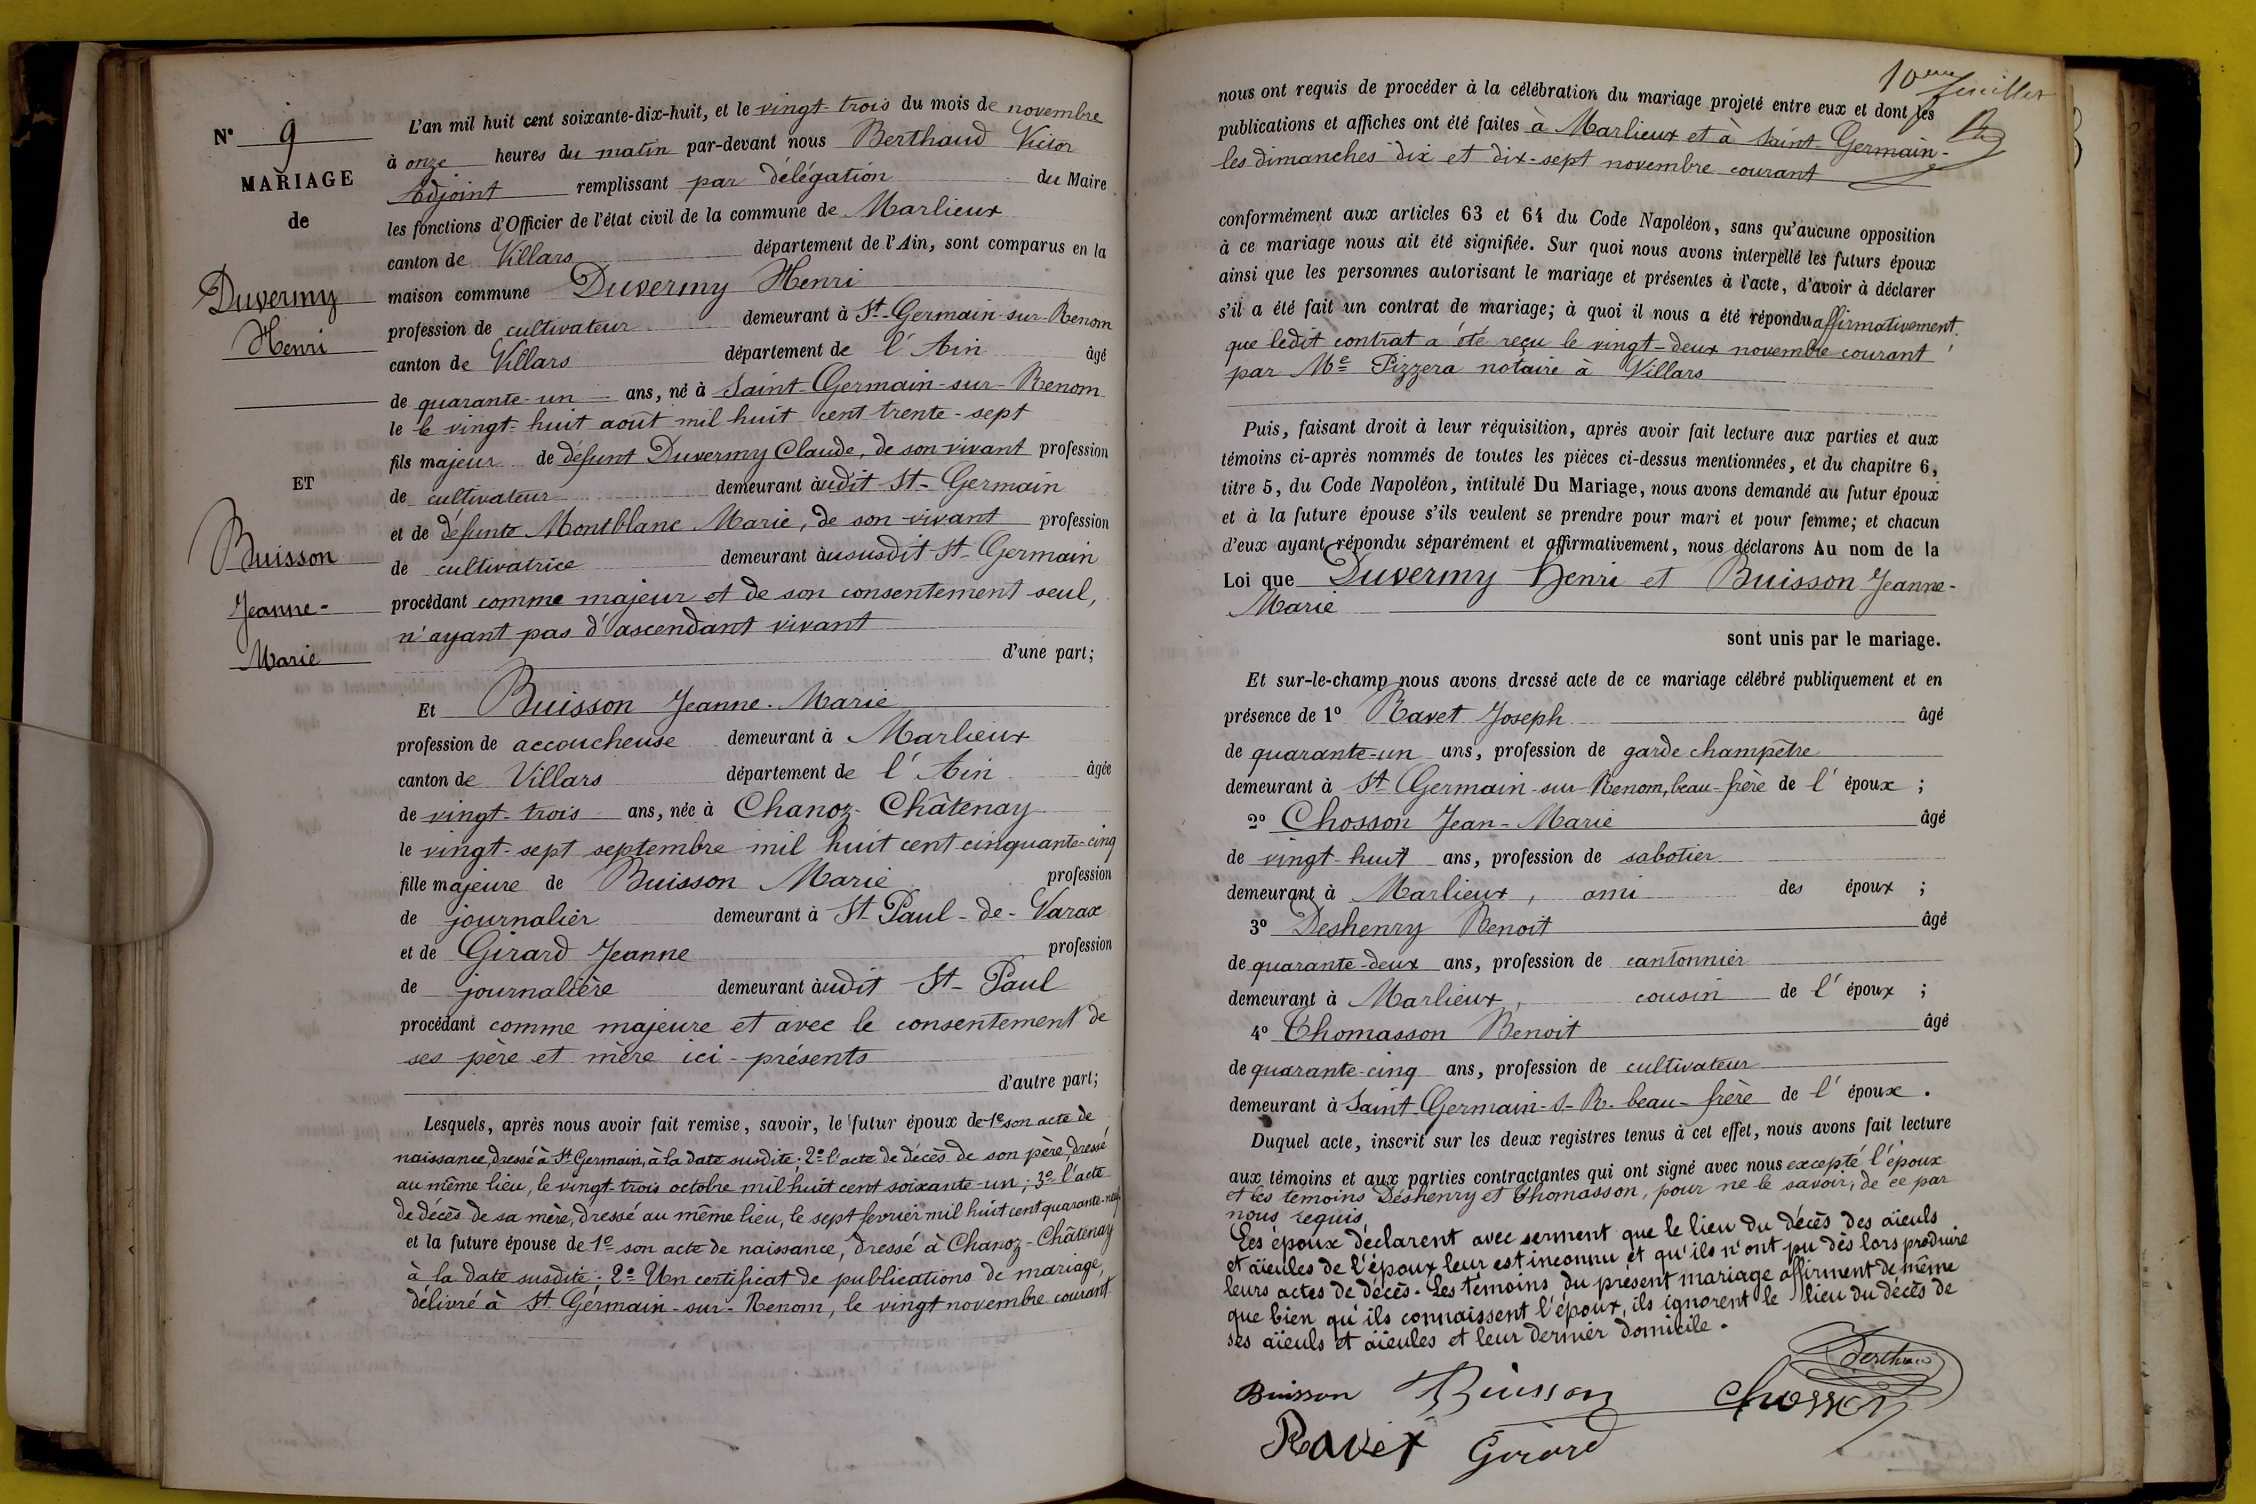 N° 9
MARIAGE
de
Duvermy
Henri
ET
Buisson
Jeanne-
Marie
L'an mil huit cent soixante-dix-huit, et le vingt-trois du mois de novembre
à onze heures du matin par-devant nous Berthaud Victor
Adjoint remplissant par délégation du Maire
les fonctions d'Officier de l'état civil de la commune de Marlieux
canton de Villars département de l'Ain, sont comparus en la
maison commune Duvermy Henri
profession de cultivateur demeurant à St-Germain-sur-Renom
canton de Villars département de l'Ain âgé
de quarante-un ans, né à Saint-Germain-sur-Renom
le le vingt-huit août mil huit cent trente-sept
fils majeur de défunt Duvermy Claude, de son vivant profession
de cultivateur demeurant àudit St-Germain
et de défunte Montblanc Marie, de son vivant profession
de cultivatrice demeurant àususdit St-Germain
procédant comme majeur et de son consentement seul,
n'ayant pas d'ascendant vivant
d'une part;
Et Buisson Jeanne-Marie
profession de accoucheuse demeurant à Marlieux
canton de Villars département de l'Ain âgée
de vingt-trois ans, née à Chanoz-Châtenay
le vingt-sept septembre mil huit cent cinquante-cinq
fille majeure de Buisson Marie profession
de journalier demeurant à St Paul-de-Varax
et de Girard Jeanne profession
de journalière demeurant àudit St-Paul
procédant comme majeure et avec le consentement de
ses père et mère ici-présents
d'autre part;
Lesquels, après nous avoir fait remise, savoir, le futur époux de 1° son acte de
naissance, dressé à St Germain, à la date susdite; 2° l'acte de décès de son père, dressé
au même lieu, le vingt-trois octobre mil huit cent soixante-un; 3° l'acte
de décès de sa mère, dressé au même lieu, le sept fevrier mil huit cent quarante-neuf
et la future épouse de 1° son acte de naissance, dressé à Chanoz-Châtenay
à la date susdite; 2° Un certificat de publications de mariage,
délivré à St Germain-sur-Renom, le vingt novembre courant
10eme feuillet
nous ont requis de procéder à la célébration du mariage projeté entre eux et dont les
publications et affiches ont été faites à Marlieux et à Saint-Germain-
les dimanches dix et dix-sept novembre courant
conformément aux articles 63 et 64 du Code Napoléon, sans qu'aucune opposition
à ce mariage nous ait été signifiée. Sur quoi nous avons interpellé les futurs époux
ainsi que les personnes autorisant le mariage et présentes à l'acte, d'avoir à déclarer
s'il a été fait un contrat de mariage; à quoi il nous a été répondu affirmativement;
que ledit contrat a été reçu le vingt-deux novembre courant
par Me Pizzera notaire à Villars
Puis, faisant droit à leur réquisition, après avoir fait lecture aux parties et aux
témoins ci-après nommés de toutes les pièces ci-dessus mentionnées, et du chapitre 6,
titre 5, du Code Napoléon, intitulé Du Mariage, nous avons demandé au futur époux
et à la future épouse s'ils veulent se prendre pour mari et pour femme; et chacun
d'eux ayant répondu séparément et affirmativement, nous déclarons Au nom de la
Loi que Duvermy Henri et Buisson Jeanne-
Marie
sont unis par le mariage.
Et sur-le-champ nous avons dressé acte de ce mariage célébré publiquement et en
présence de 1° Ravet Joseph âgé
de quarante-un ans, profession de garde champêtre
demeurant à St Germain-sur-Renom, beau-frère de l'époux;
2° Chosson Jean-Marie âgé
de vingt-huit ans, profession de sabotier
demeurant à Marlieux, ami des époux;
3° Deshenry Benoit âgé
de quarante-deux ans, profession de cantonnier
demeurant à Marlieux, cousin de l'époux;
4° Thomasson Benoit âgé
de quarante-cinq ans, profession de cultivateur
demeurant à Saint Germain-s-R. beau-frère de l'époux.
Duquel acte, inscrit sur les deux registres tenus à cet effet, nous avons fait lecture
aux témoins et aux parties contractantes qui ont signé avec nous excepté l'époux
et les témoins Deshenry et Thomasson, pour ne le savoir, de ce par
nous requis
Les époux déclarent avec serment que le lieu du décès des aïeuls
et aïeules de l'époux leur est inconnu et qu'ils n'ont pu dès lors produire
leurs actes de décès. Les témoins du present mariage affirment de même
que bien qu'ils connaissent l'époux, ils ignorent le lieu du décès de
ses aïeuls et aïeules et leur dernier domicile.
Berthaud
Buisson Buisson Chosson
Ravet Girard